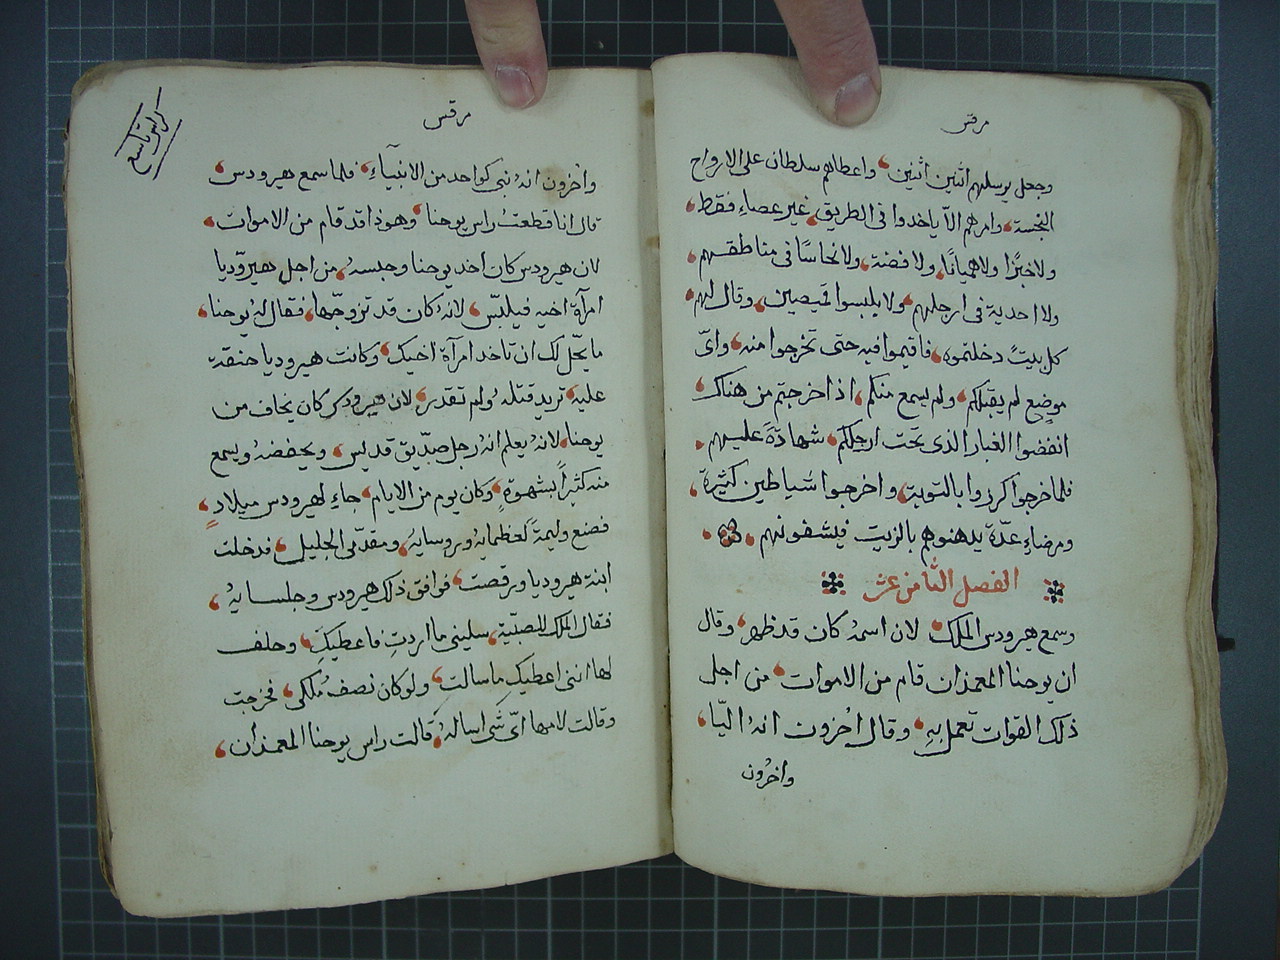 مرقس
وجعل يرسلهم اثنين اثنين، واعطاهم سلطان على الارواح
النجسة، وامرهم الّا ياخدوا فى الطريق، غير عصاءٍ فقط،
ولا خبزًا ولا هميانًا، ولا فضة، ولا نحاسًا فى مناطقهم،
ولا احدية فى ارجلهم، ولا يلبسوا قميصين، وقال لهم،
كل بيتً دخلتموه، فاقيموا فيه حتى تخرجوا منه، واىّ
موضعٍ لم يقبلكم، ولم يسمع منكم، اذا خرجتم من هناك،
انفضوا الغبار الذى تحت ارجلكم، شهادةً عليهم،
فلما خرجوا كرزوا بالتوبة، واخرجوا شياطين كثيرة،
ومرضاءٍ عدّة يدهنوهم بالزيت فيشفونهم،
الفصل الثامن عشر
وسمع هيرودس الملك، لان اسمهُ كان قد ظهر، وقال
ان يوحنا المعمدان قام من الاموات، من اجل
ذلك القوات تعمل بهِ، وقال اخرون انهُ اليّا،
واخرون
مرقس
كراس تاسع
واخرون انهُ نبى كواحد من الانبيآءِ، فلما سمع هيرودس،
قال انا قطعتُ راس يوحنا، وهوذا قد قام من الاموات،
لان هيرودس كان اخد يوحنا وحبسهُ، من اجل هيروديا
امرأة اخيه فيلبّس، لانهُ كان قد تزوجّها، فقال لهُ يوحنا،
ما يحّل لك ان تاخد امرآة اخيك، وكانت هيروديا حنقة
عليه، تريد قتلهُ ولم تقدر، لان هيرودس كان يخاف من
يوحنا، لانهُ يعلم انهُ رجل صدّيق قديس، ويحفضهُ ويسمع
منه كثيراً بشهوةٍ، وكان يوم من الايام، جاءِ لهيرودس ميلادٍ،
فصنع وليمةً لعظمايهُ وروسايهُ، ومقدمّى الجليل، فدخلت
ابنة هيروديا ورقصت، فوافق ذلك هيرودس وجلسايهُ،
فقال الملك للصبّية، سلينى ما اردتِ فاعطيكِ، وحلف
لها اننى اعطيك ما سالت، ولو كان نصف مُلكى، فخرجت
وقالت لامها اىّ شى اسالهُ، قالت راس يوحنا المعمدان،